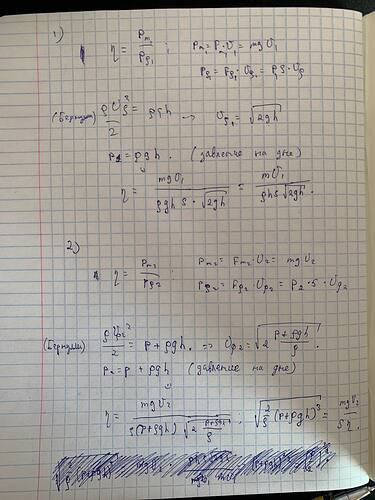 1)
η = Pm₁ / Pρ₁ ; Pm₁ = P·υ₁ = mgυ₁
Pρ₁ = Fρ₁·υρ₁ = P₁S·υρ
(Бернулли) ρυρ₁² / 2 = ρgh → υρ₁ = √(2gh)
P₁ = ρgh. (давление на дне)
η = mgυ₁ / (ρghS·√(2gh)) = mυ₁ / (ρhS√(2gh)).
2)
η = Pm₂ / Pρ₂ ; Pm₂ = Fm₂·υ₂ = mgυ₂
Pρ₂ = Fρ₂·υρ₂ = P₂·S·υρ₂
(Бернулли) ρυρ₂² / 2 = P + ρgh. ⇒ υρ₂ = √(2 (P+ρgh)/ρ).
P₂ = P + ρgh (давление на дне)
η = mgυ₂ / (S(P+ρgh)√(2 (P+ρgh)/ρ)) ; √(2/ρ (P+ρgh)³) = mgυ₂ / (Sη).